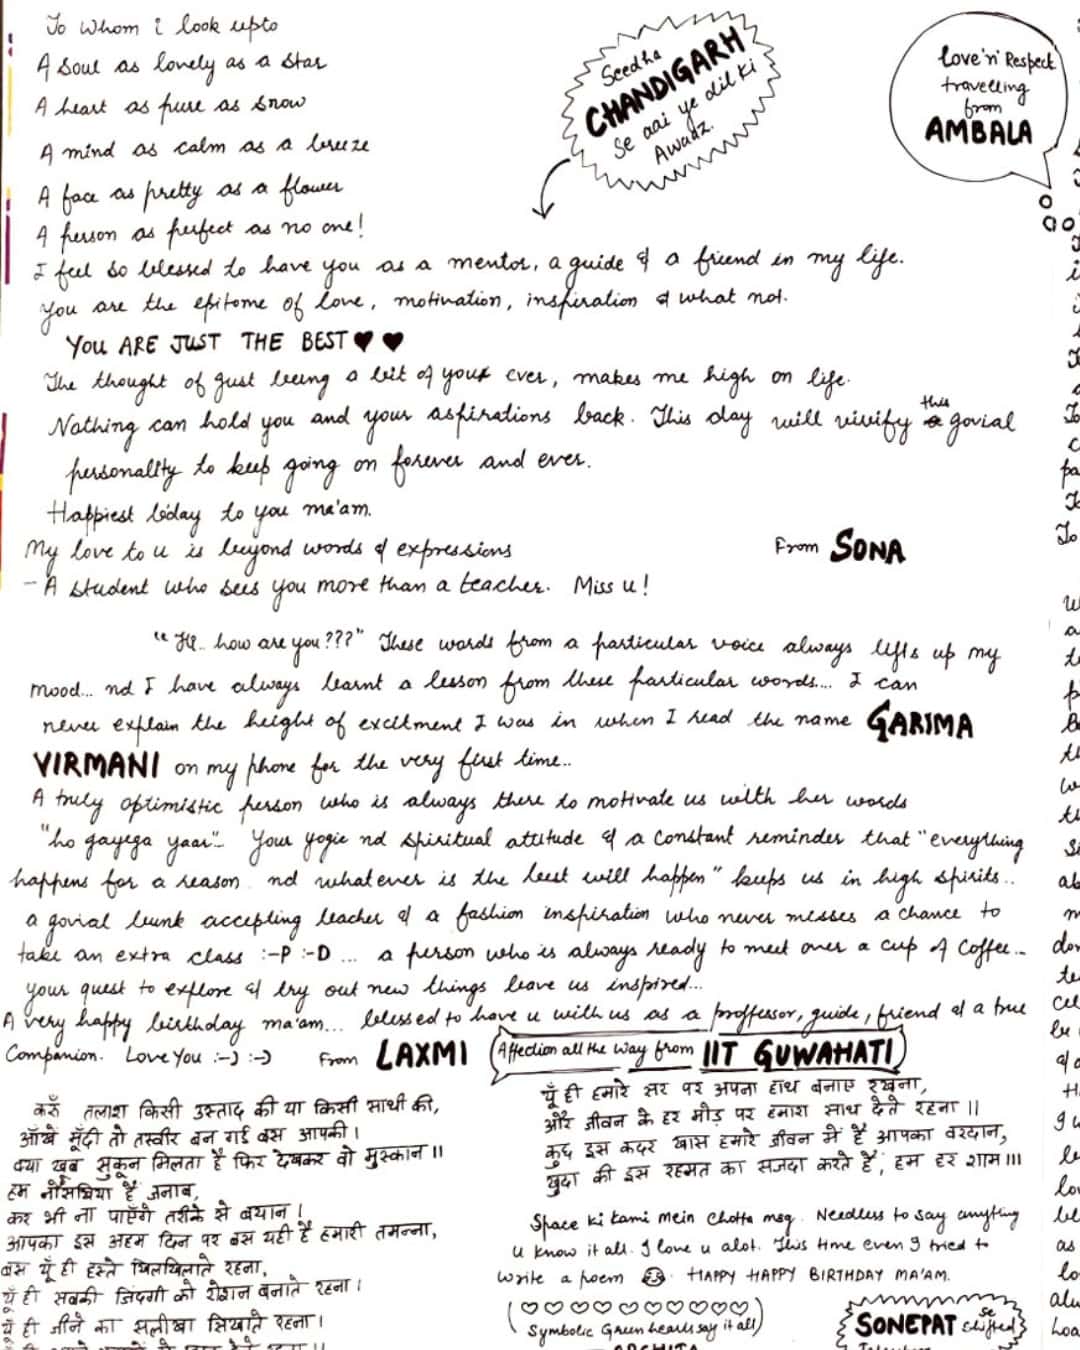 To Whom i look upto
A soul as lovely as a star
A heart as pure as snow
A mind as calm as a breeze
A face as pretty as a flower
A person as perfect as no one!
Seedha
CHANDIGARH
Se aai ye dil ki
Awadz.
love'n'Respect
travelling
from
AMBALA
I feel so blessed to have you as a mentor, a guide & a friend in my life.
You are the epitome of love, motivation, inspiration & what not.
YOU ARE JUST THE BEST ♥ ♥
The thought of just being a bit of your ever, makes me high on life.
Nothing can hold you and your aspirations back. This day will vivify this govial
personality to keep going on forever and ever.
Happiest b'day to you ma'am.
My love to u is beyond words & expressions
From SONA
- A student who sees you more than a teacher. Miss u!
"Hi.. how are you???" These words from a particular voice always lifts up my
mood... nd I have always learnt a lesson from these particular words.... I can
never explain the height of excitment I was in when I read the name GARIMA
VIRMANI on my phone for the very first time..
A truly optimistic person who is always there to motivate us with her words
"ho gayega yaar".. Your yogic nd spiritual attitude & a constant reminder that "everything
happens for a reason nd whatever is the best will happen" keeps us in high spirits..
a govial bunk accepting teacher & a fashion inspiration who never misses a chance to
take an extra class :-P :-D ... a person who is always ready to meet over a cup of coffee..
your quest to explore & try out new things leave us inspired...
A very happy birthday ma'am... blessed to have u with us as a proffessor, guide, friend & a true
Companion. Love You :-) :-) From LAXMI
Affection all the way from IIT GUWAHATI
करूँ तलाश किसी उस्ताद की या किसी साथी की,
आँखें मूँदी तो तस्वीर बन गई बस आपकी।
क्या खूब सुकून मिलता है फिर देखकर वो मुस्कान॥
हम नौसिखिया हैं जनाब,
कर भी ना पाएँगे तरीके से बयान।
आपका इस अहम दिन पर बस यही है हमारी तमन्ना,
बस यूँ ही हस्ते खिलखिलाते रहना,
यूँ ही सबकी जिंदगी को रोशन बनाते रहना।
यूँ ही जीने का सलीखा सिखाते रहना।
यूँ ही हमारे सर पर अपना हाथ बनाए रखना,
और जीवन के हर मोड़ पर हमारा साथ देते रहना॥
कुछ इस कदर खास हमारे जीवन में है आपका वरदान,
खुदा की इस रहमत का सजदा करते हैं, हम हर शाम॥।
Space ki kami mein chotta msg. Needless to say anything
u know it all. I love u alot. This time even I tried to
write a poem. HAPPY HAPPY BIRTHDAY MA'AM.
♡♡♡♡♡♡♡♡♡♡
Symbolic Green hearts say it all
SONEPAT se shifted